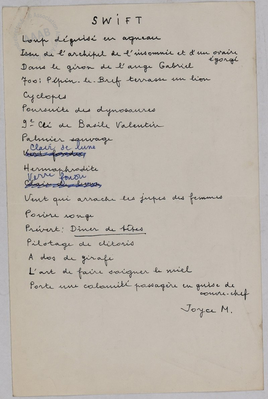 SWIFT
Loup déguisé en agneau
Issu de l'archipel de l'insomnie et d'un ovaire
égorgé
Dans le giron de l'ange Gabriel
700: Pépin-le-Bref terrasse un lion
Cyclopes
Poursuite des dynosaures
9e Clé de Basile Valentin
Palmier sauvage
Clair de lune
Hermaphrodite
Verre
Vent qui arrache les jupes des femmes
Poivre rouge
Prévert: Dîner de têtes
Pilotage de clitoris
A dos de girafe
L'art de faire saigner le miel
Porte une calamité passagère en guise de
couvre-chef
Joyce M.